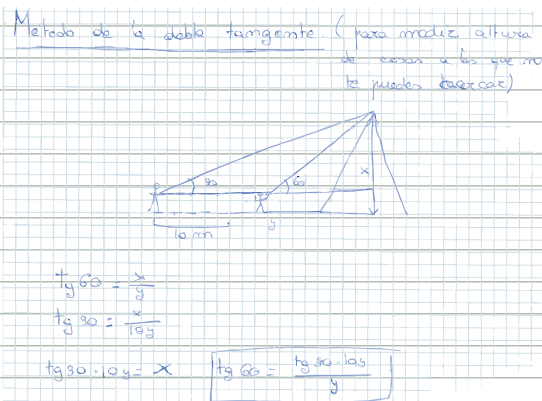 Metodo de la doble tangente. (para medir altura
de cosas a las que no
te puedes acercar)
30
60
x
10 m
y
tg 60 = x/y
tg 30 = x/10y
tg 30 · 10y = x
tg 60 = tg 30 · 10y / y